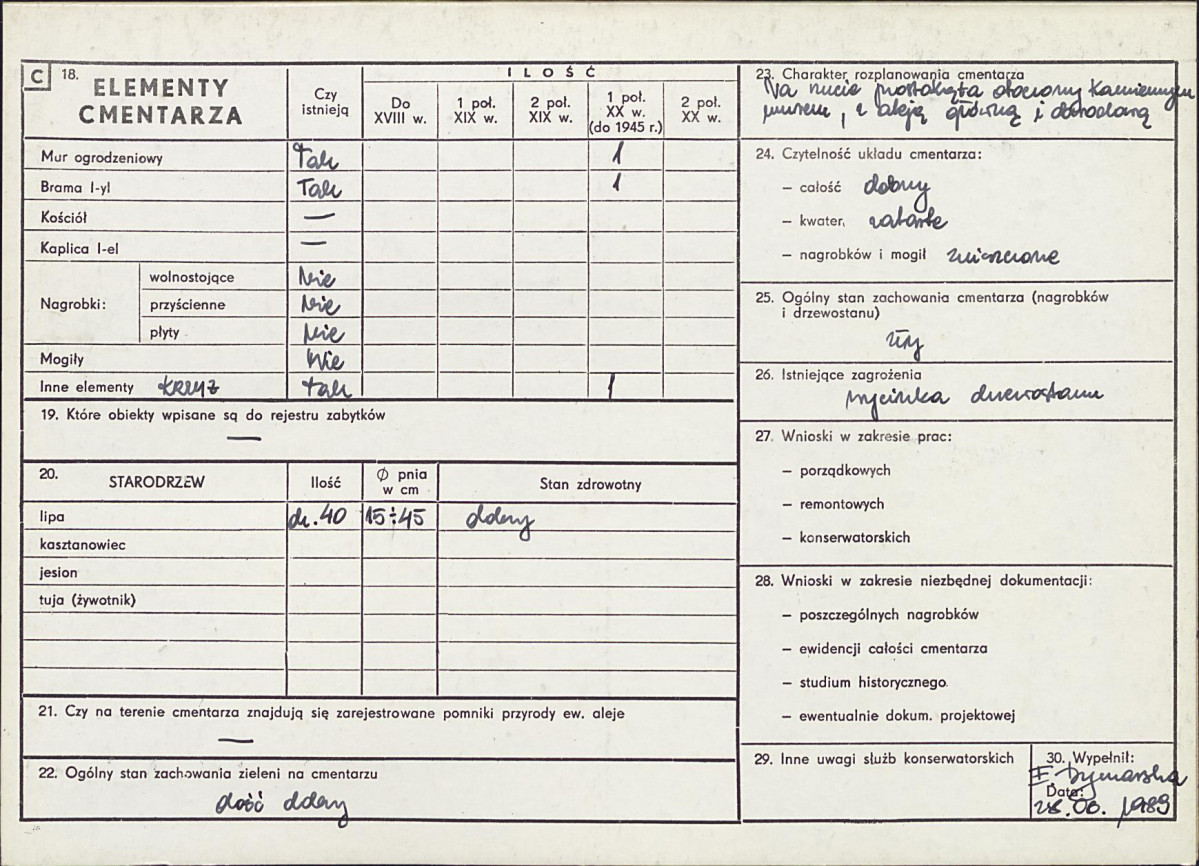 C 18. ELEMENTY CMENTARZA
Czy istnieją
ILOŚĆ
Do XVIII w.
1 poł. XIX w.
2 poł. XIX w.
1 poł. XX w. (do 1945 r.)
2 poł. XX w.
Mur ogrodzeniowy Tak 1
Brama l-yl Tak 1
Kościół —
Kaplica l-el —
Nagrobki:
wolnostojące Nie
przyścienne Nie
płyty Nie
Mogiły Nie
Inne elementy krzyż tak 1
19. Które obiekty wpisane są do rejestru zabytków
—
20. STARODRZEW Ilość Ø pnia w cm Stan zdrowotny
lipa ok. 40 15÷45 dobry
kasztanowiec
jesion
tuja (żywotnik)
21. Czy na terenie cmentarza znajdują się zarejestrowane pomniki przyrody ew. aleje
—
22. Ogólny stan zachowania zieleni na cmentarzu
dość dobry
23. Charakter rozplanowania cmentarza
Na rzucie prostokąta otoczony kamiennym
murem, z aleją główną i obwodową
24. Czytelność układu cmentarza:
– całość dobry
– kwater, zatarte
– nagrobków i mogił zniszczone
25. Ogólny stan zachowania cmentarza (nagrobków
i drzewostanu)
zły
26. Istniejące zagrożenia
wycinka drzewostanu
27. Wnioski w zakresie prac:
– porządkowych
– remontowych
– konserwatorskich
28. Wnioski w zakresie niezbędnej dokumentacji:
– poszczególnych nagrobków
– ewidencji całości cmentarza
– studium historycznego.
– ewentualnie dokum. projektowej
29. Inne uwagi służb konserwatorskich
30. Wypełnił:
Dymarska
Data:
28.06.1989